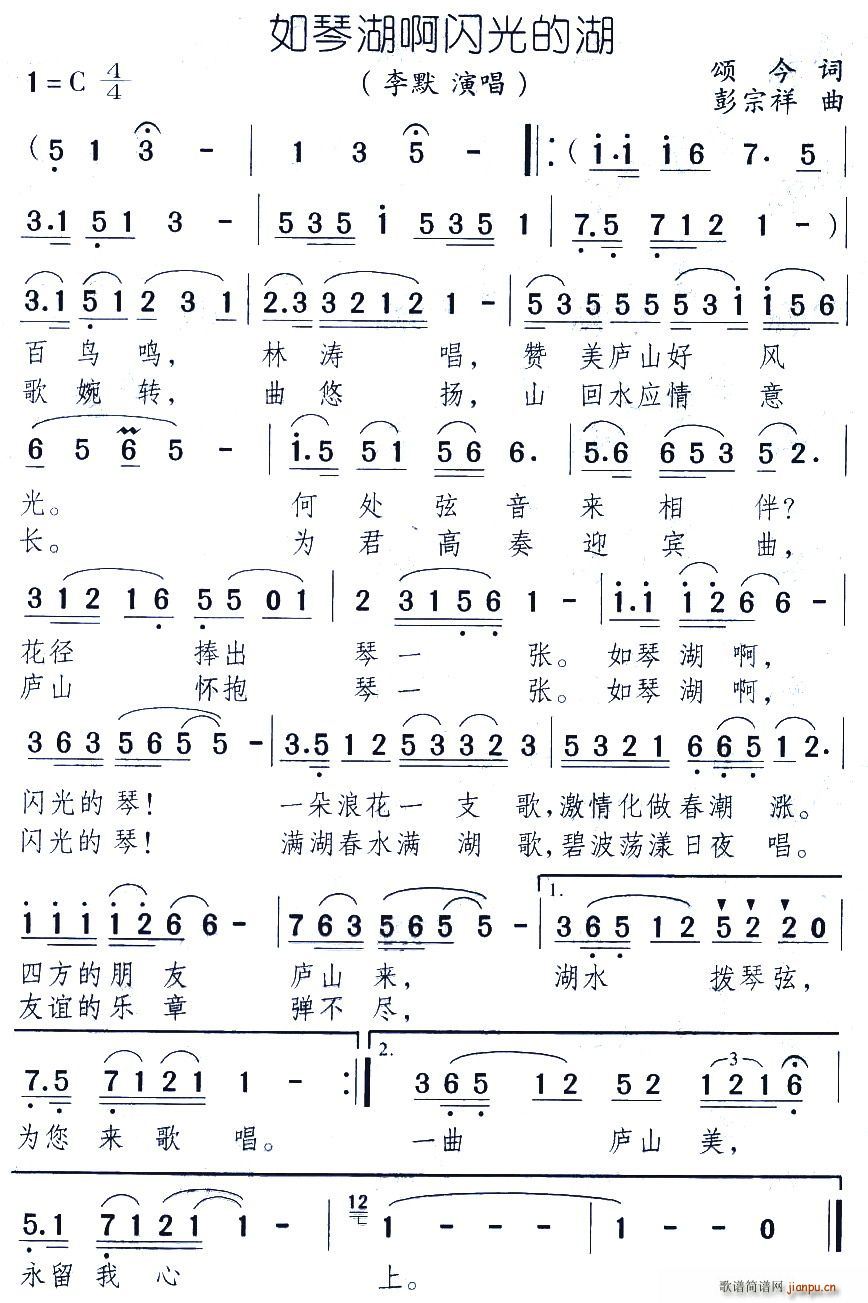 如琴湖啊闪光的湖
1=C 4/4
(李默 演唱)
颂今 词
彭宗祥 曲
(5 1 3 - | 1 3 5 - |: (i·i i6 7· 5 |
3·1 51 3 - | 535 i 535 1 | 7·5 712 1 - )|
3·1 51 2 3 1 | 2·3 3212 1 - | 53555553i i56 |
百鸟鸣, 林涛唱, 赞美庐山好风
歌婉转, 曲悠扬, 山回水应情意
6 5 6 5 - | i·5 51 56 6· | 5·6 653 5 2· |
光。 何处弦音来相伴?
长。 为君高奏迎宾曲,
312 16 55 01 | 2 3156 1 - | i·i i26 6 - |
花径捧出琴一张。如琴湖啊,
庐山怀抱琴一张。如琴湖啊,
363 565 5 - | 3·5 12 5332 3 | 5321 665 12· |
闪光的琴! 一朵浪花一支歌,激情化做春潮涨。
闪光的琴! 满湖春水满湖歌,碧波荡漾日夜唱。
iii i26 6 - | 763 565 5 - | 1. 365 12 52 20 |
四方的朋友庐山来, 湖水拨琴弦,
友谊的乐章弹不尽,
7·5 7121 1 - :| 2. 365 12 52 1216 3 |
为您来歌唱。 一曲庐山美,
5·1 7121 1 - | 12 1 - - - | 1 - - 0 ‖
永留我心上。
歌谱简谱网 jianpu.cn